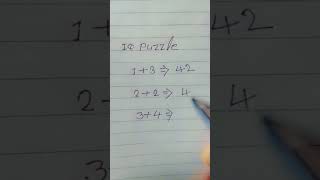 IQ Puzzle
1+3 ⇒ 42
2+2 ⇒ 4
3+4 ⇒